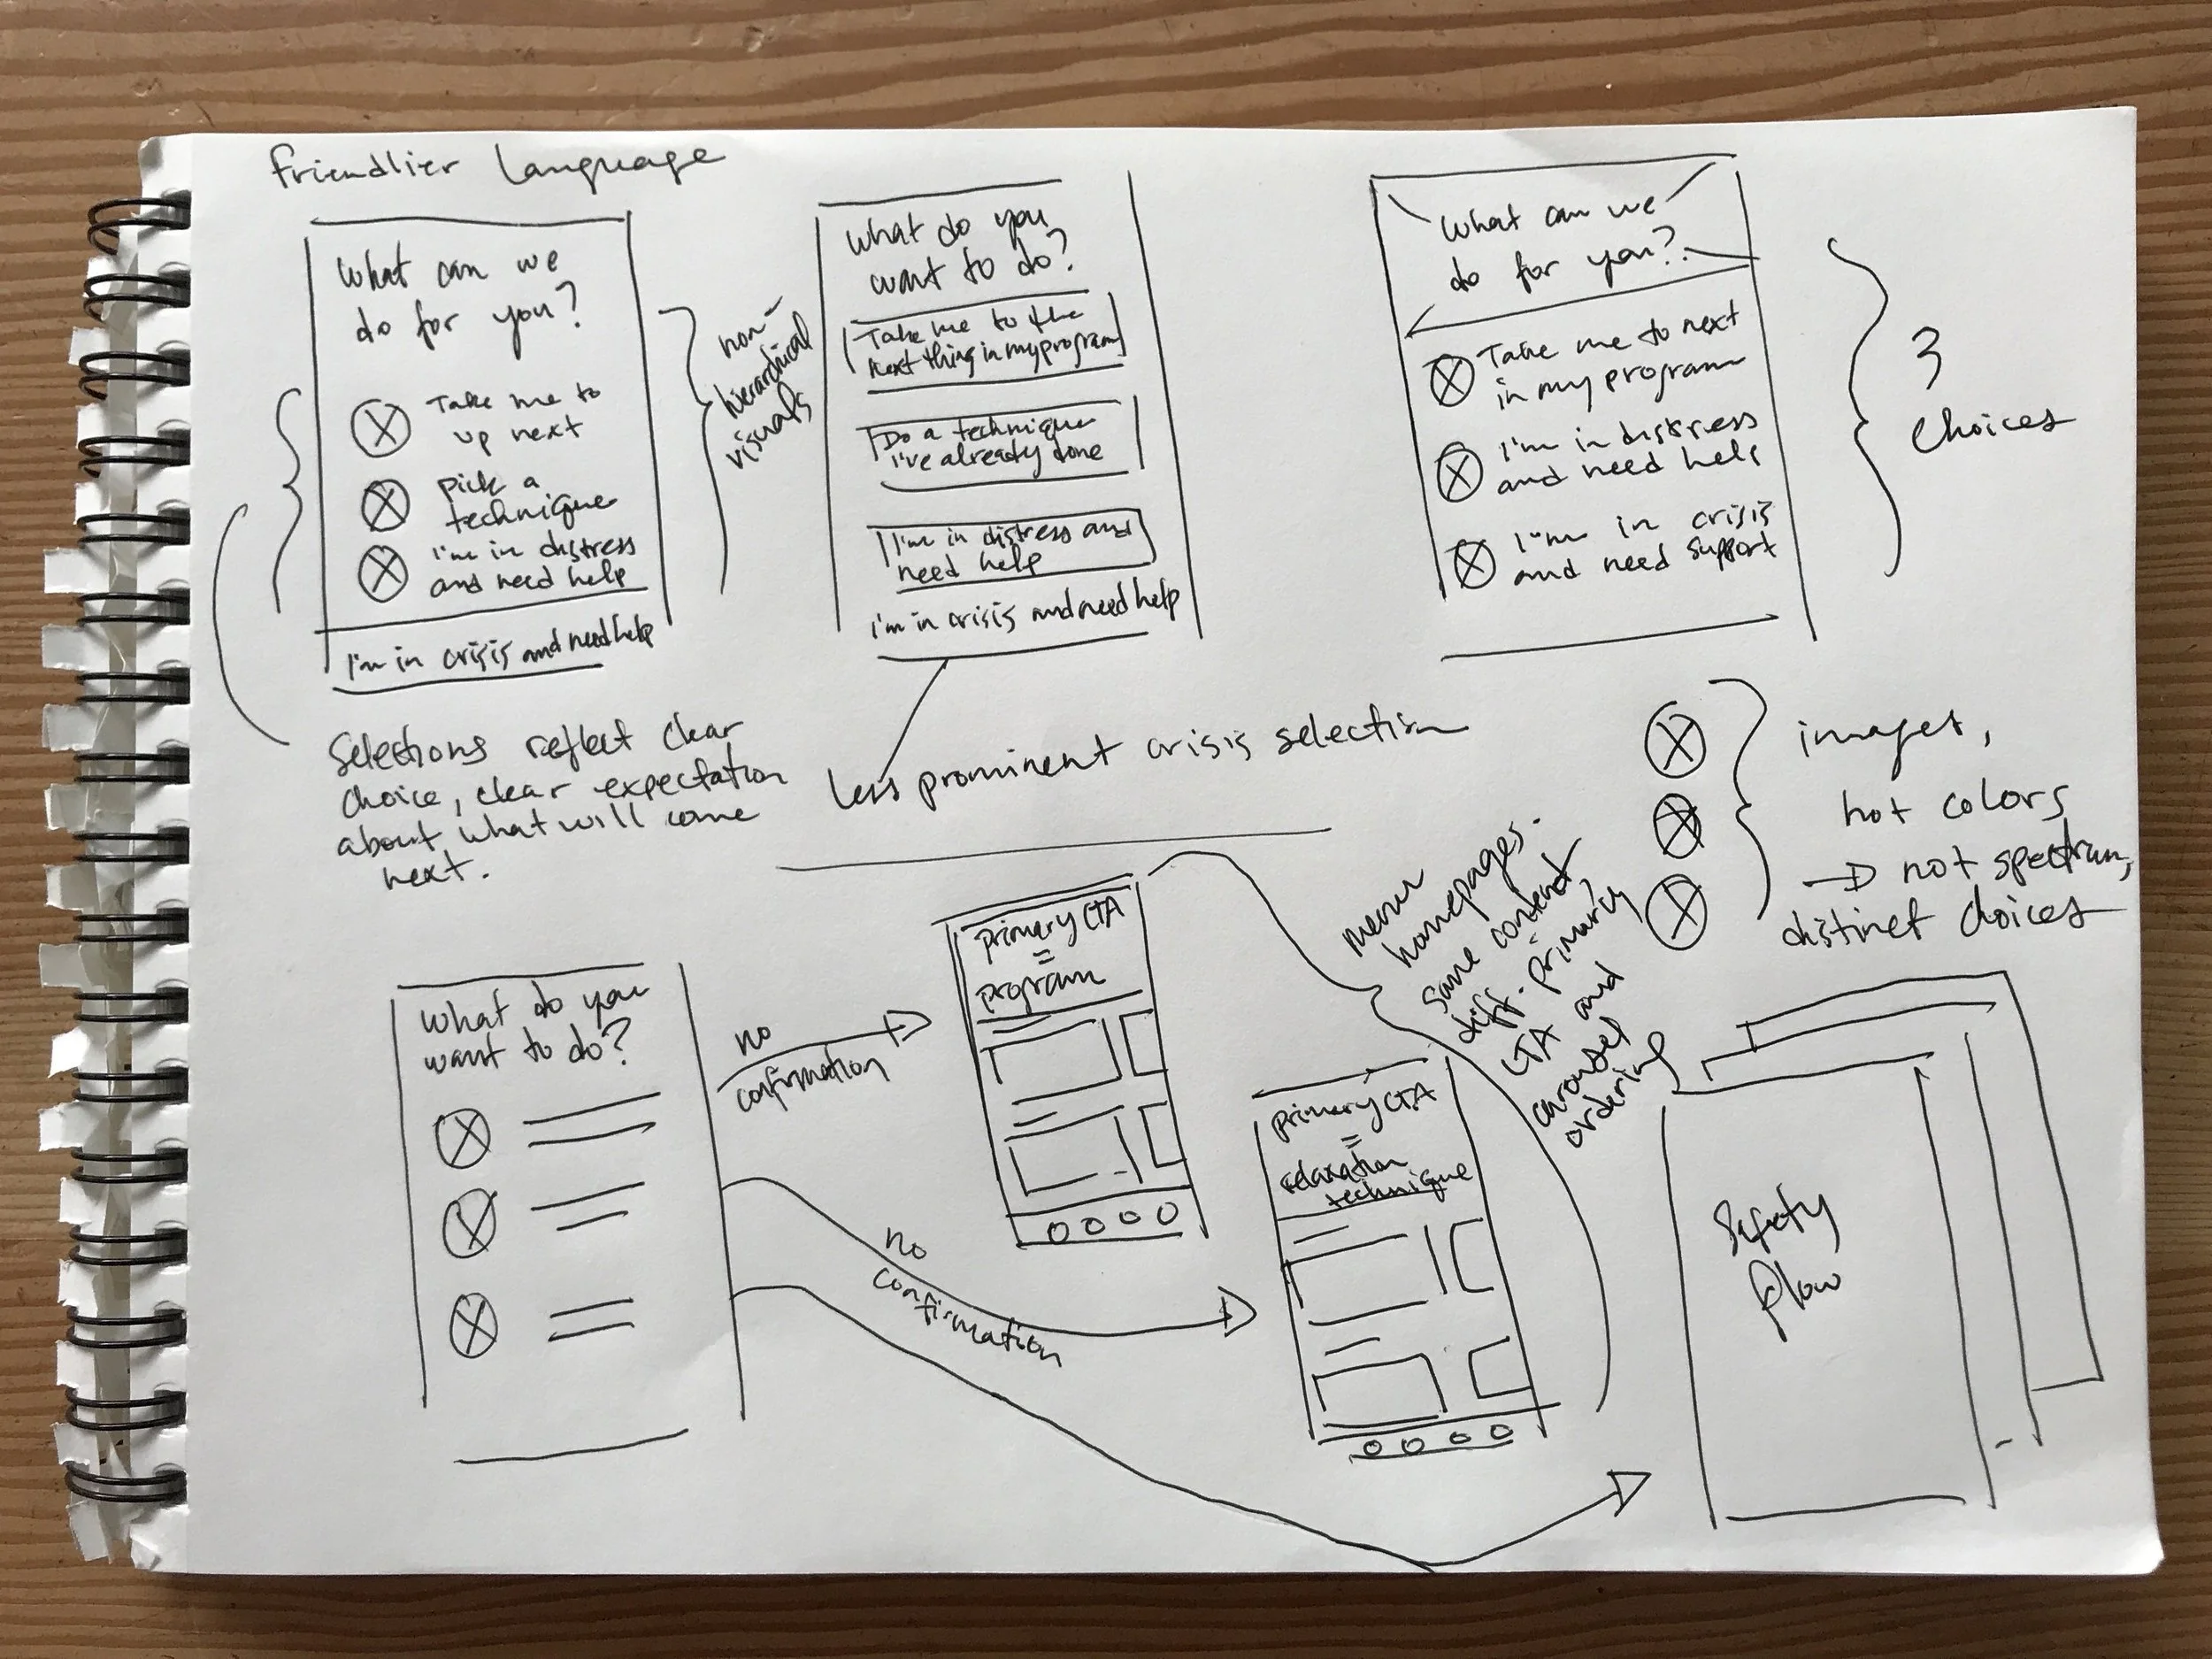 Friendlier Language
What can we
do for you?
Take me to
up next
pick a
technique
I'm in distress
and need help
I'm in crisis and need help
non-
hierarchical
visuals
What do you
want to do?
Take me to the
next thing in my program
Do a technique
I've already done
I'm in distress and
need help
I'm in crisis and need help
What can we
do for you?
Take me to next
in my program
I'm in distress
and need help
I'm in crisis
and need support
3
choices
Selections reflect clear
choice, clear expectation
about what will come
next.
less prominent crisis selection
images,
not colors
→ not spectrum,
distinct choices
What do you
want to do?
no
confirmation
no
confirmation
primary CTA
=
program
primary CTA
=
relaxation
technique
menu
homepages.
same content
diff. primary
CTA and
carousel
ordering
Safety
flow